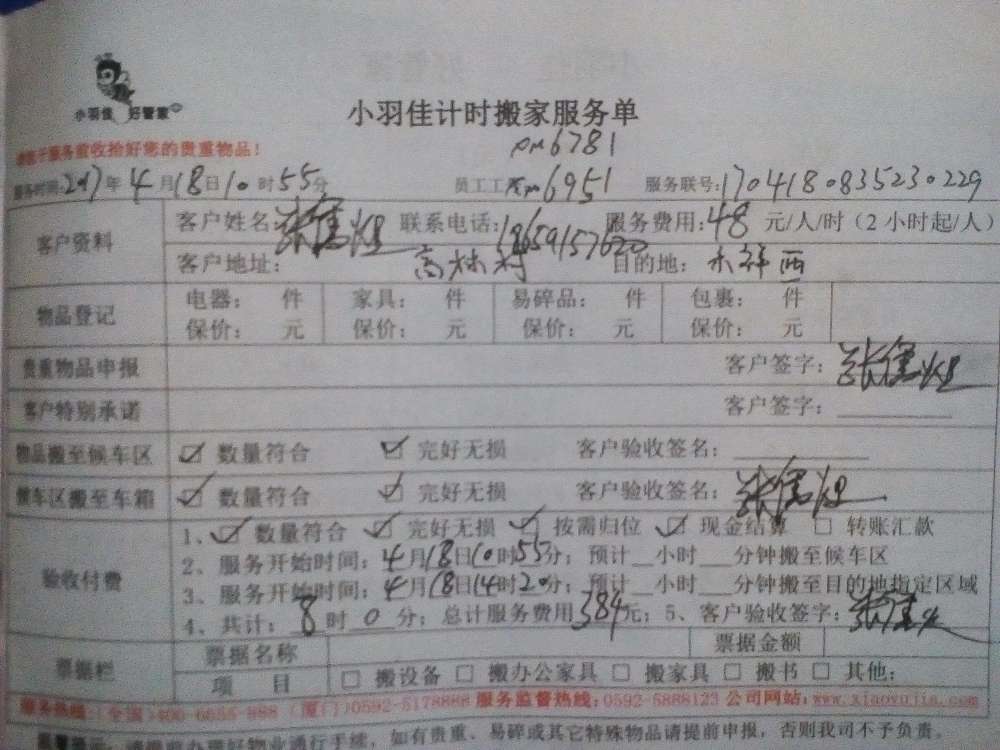 小羽佳 好管家
小羽佳计时搬家服务单
请您于服务前收拾好您的贵重物品！
6781
服务时间:2017年4月18日10时55分 员工工 6951 服务联号:1704180835230229
客户资料
客户姓名: 联系电话: 服务费用:48 元/人/时（2小时起/人）
客户地址: 高林村 目的地: 木祥西
物品登记
电器： 件 家具： 件 易碎品： 件 包裹： 件
保价： 元 保价： 元 保价： 元 保价： 元
贵重物品申报 客户签字：
客户特别承诺 客户签字：
物品搬至候车区 ☑ 数量符合 ☑ 完好无损 客户验收签名：
候车区搬至车箱 ☑ 数量符合 ☑ 完好无损 客户验收签名：
验收付费
1、☑ 数量符合 ☑ 完好无损 ☑ 按需归位 ☑ 现金结算 □ 转账汇款
2、服务开始时间：4月18日10时55分；预计__小时___分钟搬至候车区
3、服务开始时间：4月18日14时20分；预计__小时___分钟搬至目的地指定区域
4、共计：8时0分；总计服务费用384元；5、客户验收签字：
票据栏
票据名称 票据金额
项 目 □ 搬设备 □ 搬办公家具 □ 搬家具 □ 搬书 □ 其他：
服务热线：（全国）400-6655-988 （厦门）0592-5178888 服务监督热线：0592-5888123 公司网站：www.xiaoyujia.com
理好物业通行手续，如有贵重、易碎或其它特殊物品请提前申报，否则我司不予负责。